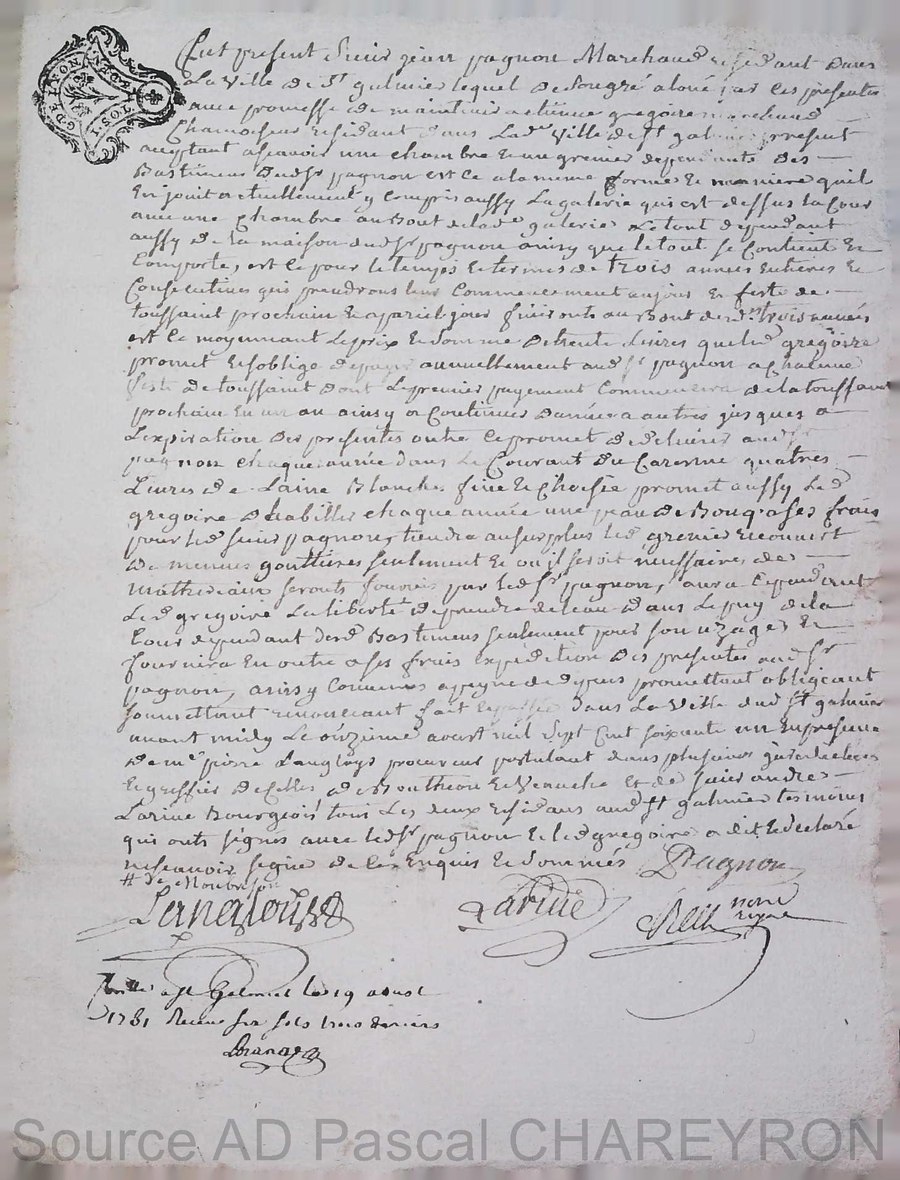 GN. DE LYON
Fut present Sieur jean pagnon Marchand residant dans
La Ville de St galmier lequel de Son gré a loué par ces presentes
avec promesse de maintenir a etienne gregoire marchand
Chamoiseur residant dans Lade. Ville de St galmier present
acceptant ascavoir une chambre et un grenier dependants des
Bastimens dud. Sr pagnon est ce a la meme forme et maniere quil
En jouit actuellement y Compris aussy La galerie qui est dessus la Cour
avec une Chambre au Bout de lade. galerie Le tout dependant
aussy de la maison dud. Sr pagnon ainsy que le tout se Contient Et
Comporte, est ce pour le temps et termes de trois années Entieres Et
Consecutives qui prendront leur Commencement au jour Et feste de
toussaint prochain Et a pareil jour finiront au Bout desd. trois années
est ce moyennant Le prix Et Somme de trente Livres que led. gregoire
promet Et soblige de payer annuellement aud. Sr pagnon a Chalune
feste de toussaint dont Le premier payement Commencera de la toussaint
prochain En un an ainsy a Continuer danneé a autres jusques a
Lexpiration des presentes outre Ce promet de delivrer aud. Sr
pagnon chaque année dans Le Courant du Caresme quatres
Livres de Laine Blanche fine Et Choisie promet aussy Led.
gregoire dhabiller chaque année une peau de Bouq a ses frais
pour led. Sieur pagnon, tiendra au surplus led. grenier En couvert
de menues gouttieres seulement Et ou il seroit nessaires de
matheriaux seronts fournis par led. Sr pagnon, aura Cependent
Led. gregoire La liberté de prendre de leau dans Le puy de la
Cour dependant desd. Bastimens seulement pour son uzage, Et
fournira En outre a ses frais Expedition des presentes aud. Sr
pagnon, ainsy Convenus a peyne de depens promettant obligeant
soumettant renonceant fait Et passé dans La Ville dud. St galmier
avant midy Le onzieme aoust mil Sept Cent soixante un En presence
de me. pierre Langloys procureur postulant dans plusieurs
Et greffier de Celles de Boutheon Et Veauche Et de sieur andré
Larive Bourgeois tous Les deux residans aud. St galmier temoins
qui onts signes avec led. Sr pagnon Et led. gregoire a dit Et declaré
ne scavoir signer de Ce Enquis Et Sommés Pagnon
# de Montbrison
Langlois Larive
nore
royal
a St Galmier le 19 aoust
1761 Receu six sols trois deniers
Source AD Pascal CHAREYRON